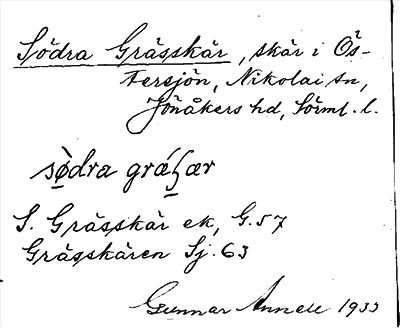 Södra Grässkär, skär i Ös-
tersjön, Nikolai sn,
Jönåkers hd, Sörml. l.
sø̀dra gräʂær
S. Grässkär ek, G. 57
Grässkären Sj. 63
Gunnar Annell 1933